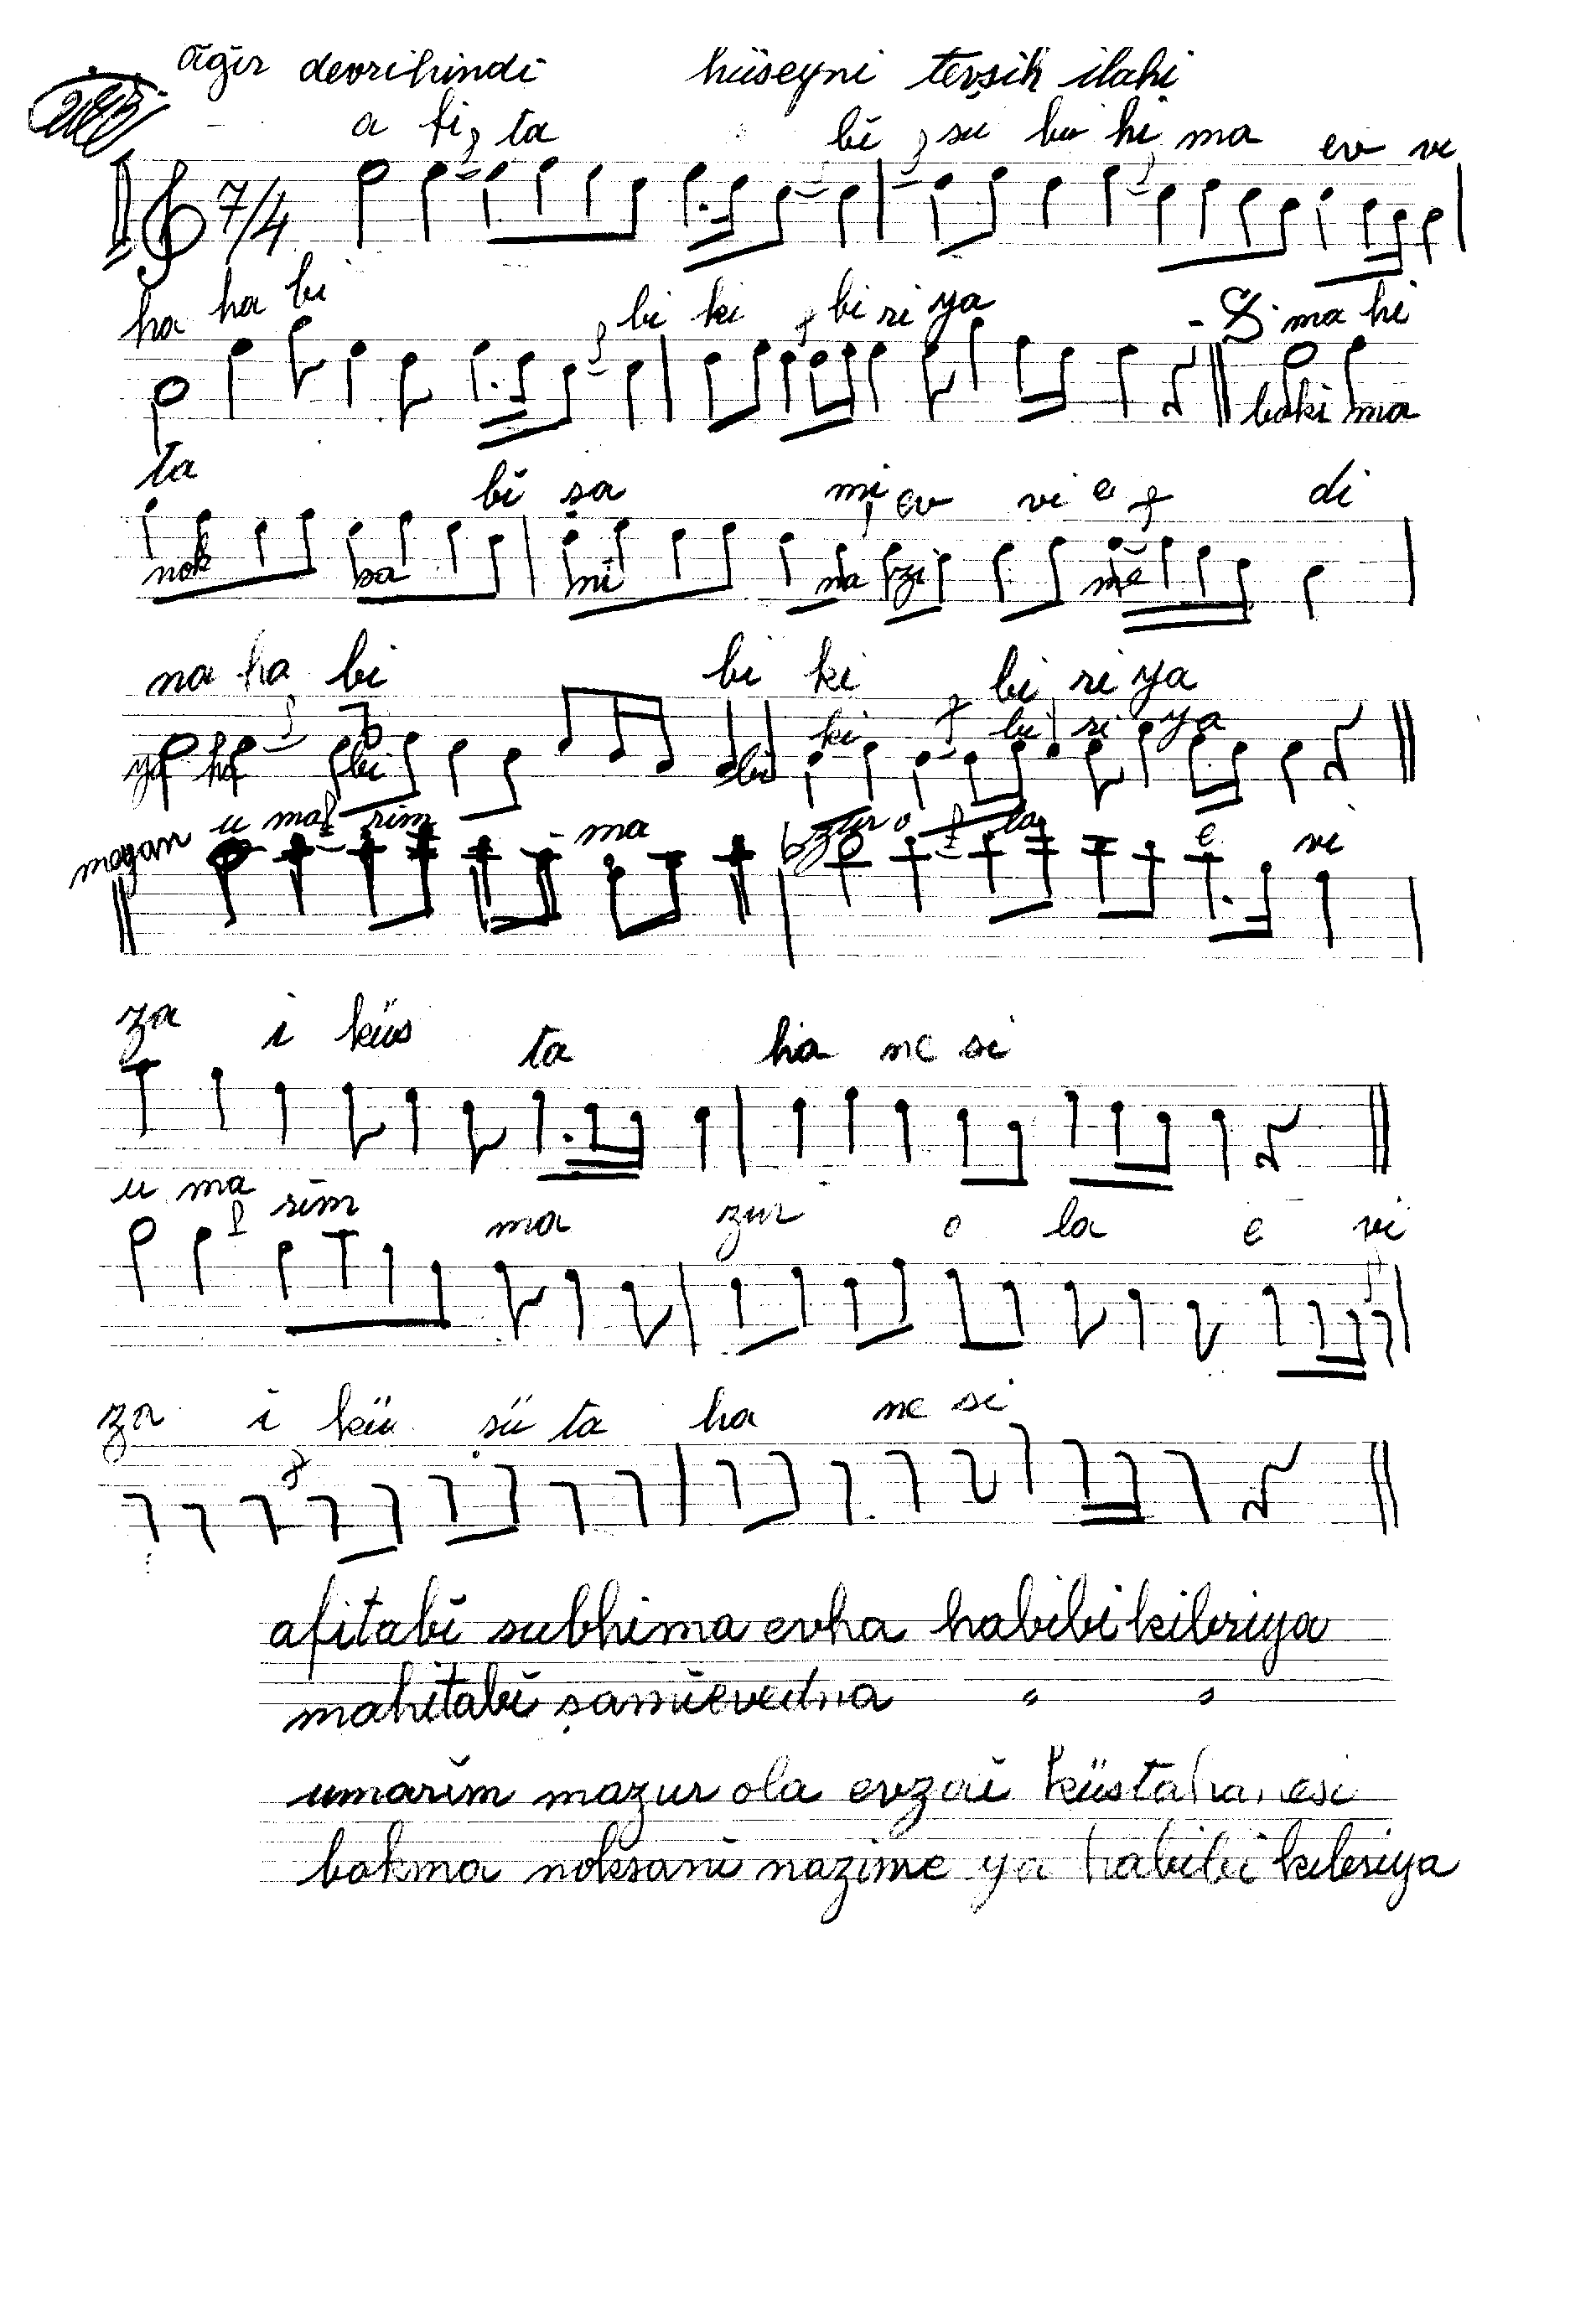 ağır devrihindi hüseyni tevşih ilahi
a fi ta bi su bu hi ma ev vi
7/4
ha ha bi bi ki bi ri ya ma hi
baki ma
ta bi şa mi ev vi e di
nok sa ni na zi me
na ha bi bi ki bi ri ya
ya ha bi bi ki bi ri ya
meyan u ma rim ma zur o la e vi
za i küs ta ha ne si
u ma rim ma zur o la e vi
za i kü sü ta ha ne si
afitabi subhima evha habibi kibriya
mahitabi şamievedna " "
umarim mazur ola evzai küstahanesi
bakma noksani nazime ya habibi kibriya